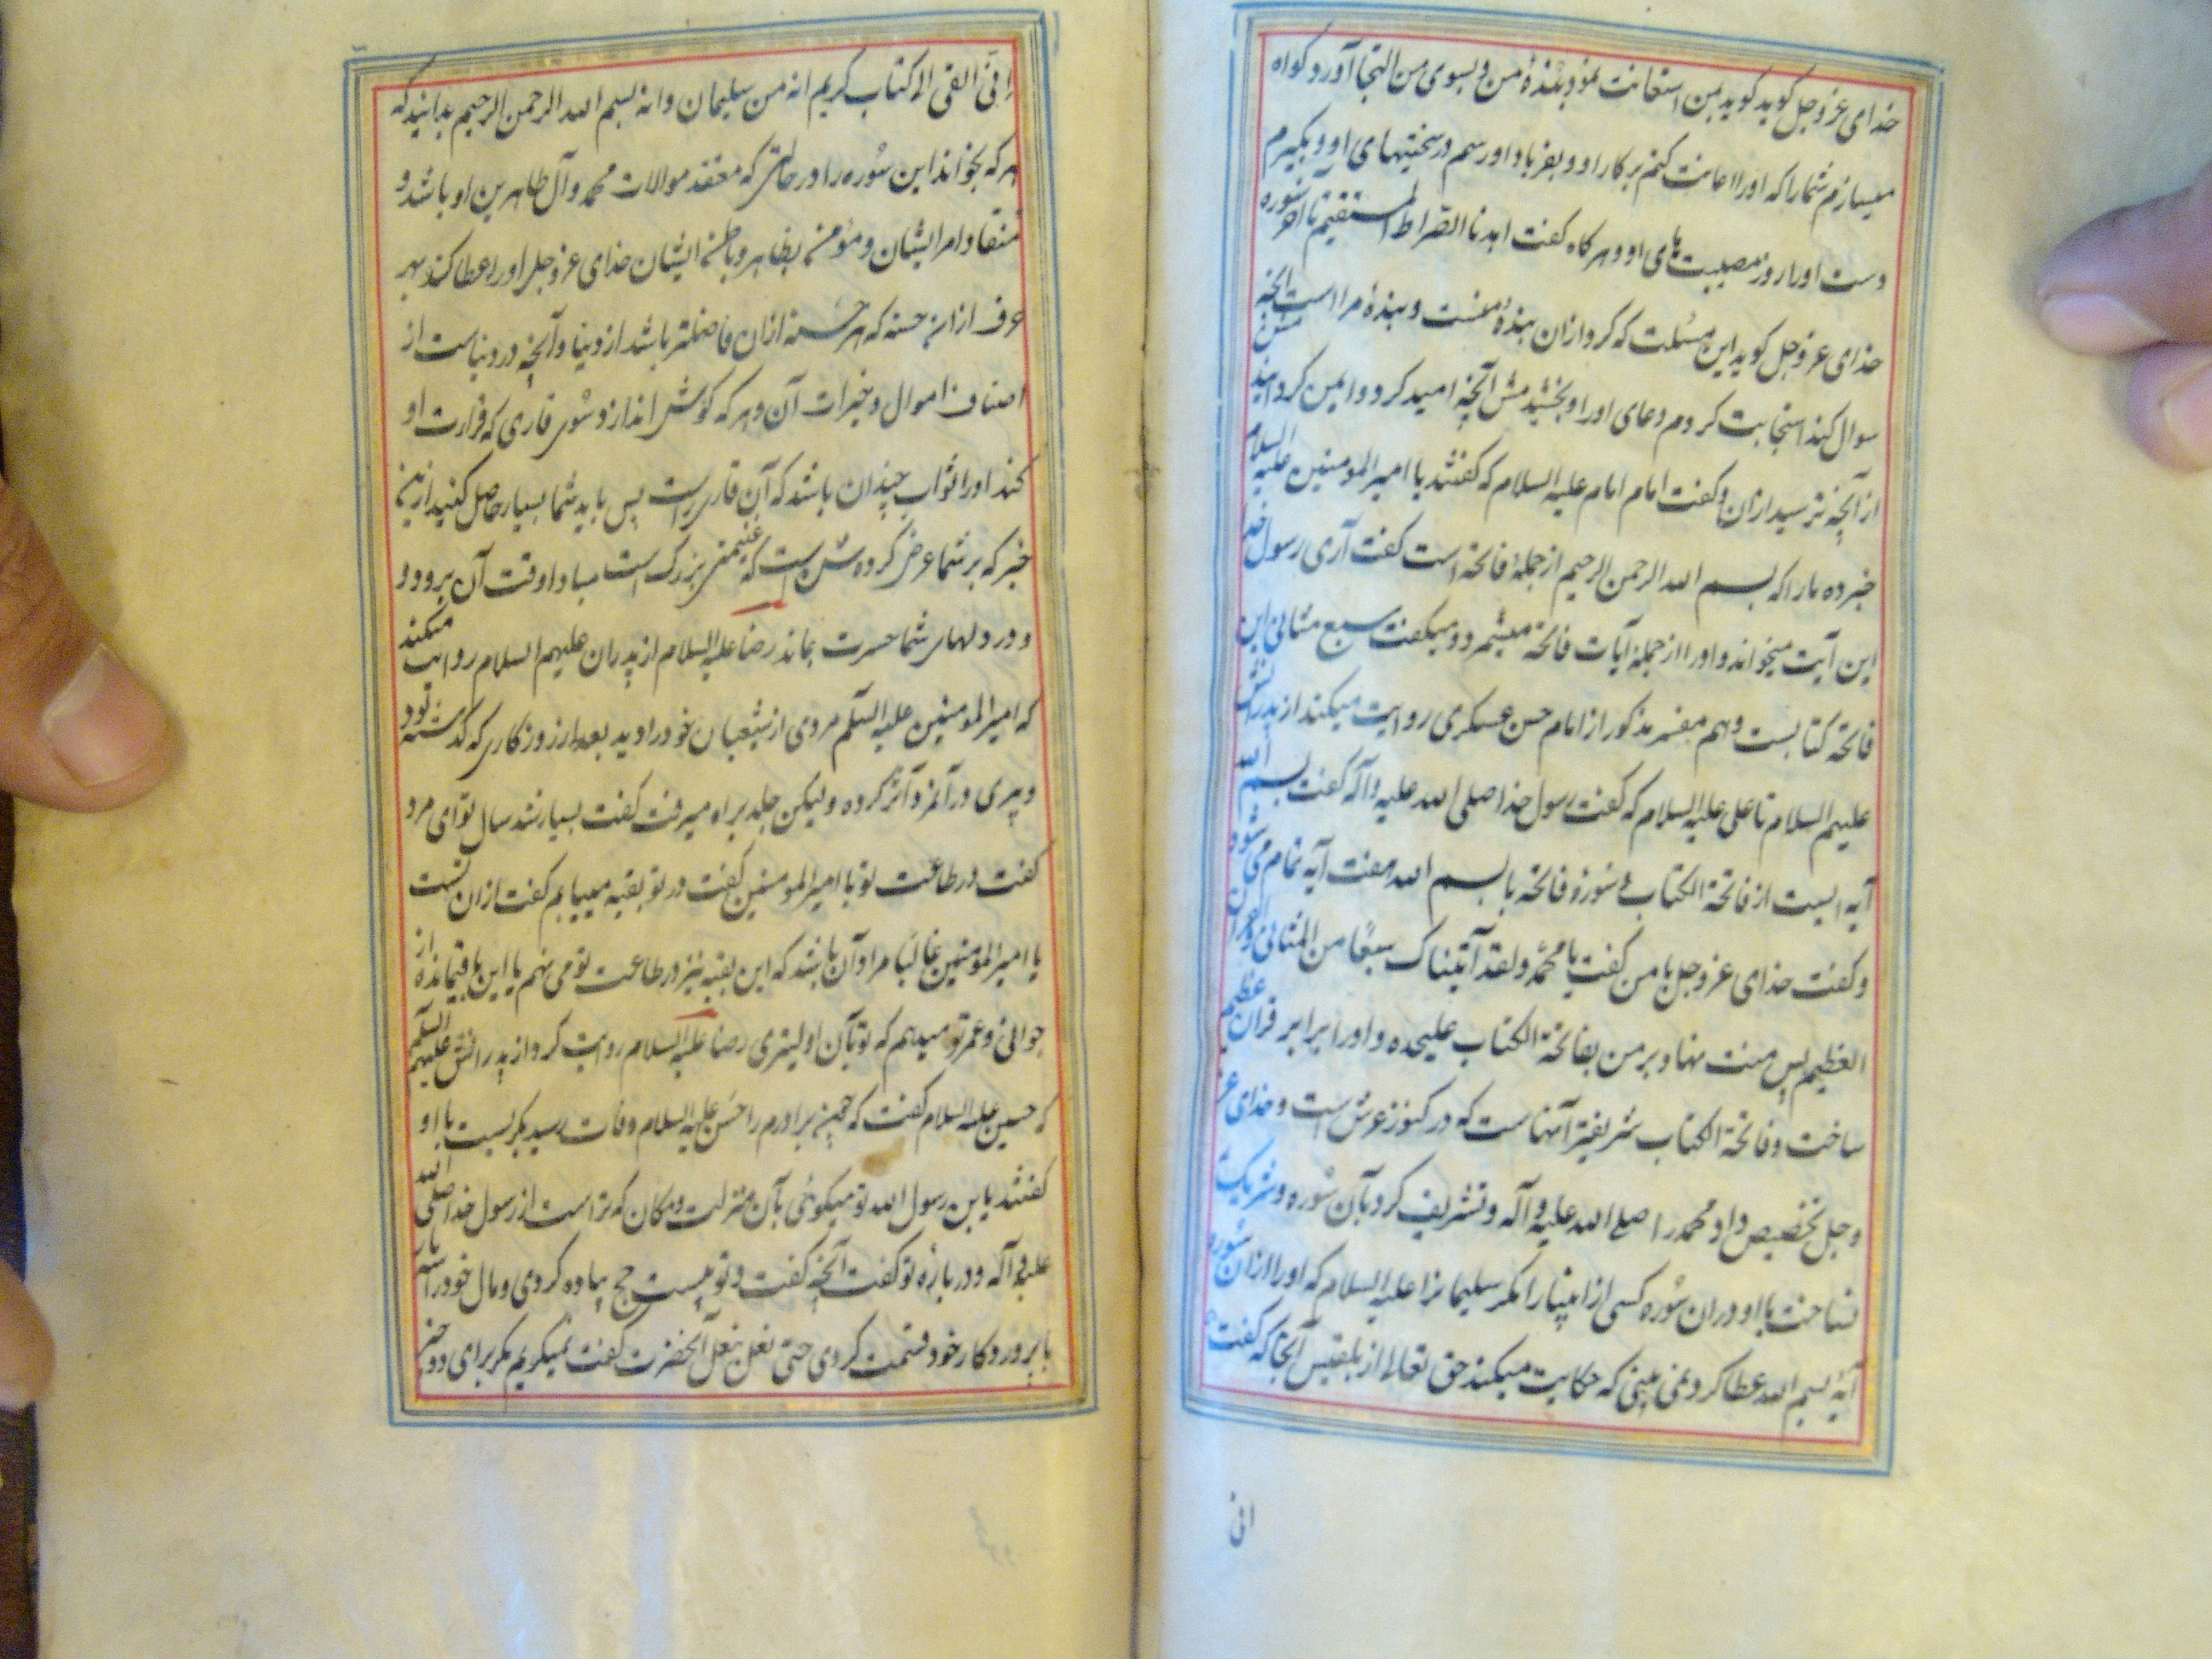 خدای عز و جل کوید کوید بمن استعانت نمود بندهٔ من و بسوی من التجا آورد کواه
میسازم شما را که او را اعانت کنم بر کار او و بفریاد او رسم در سختیهای او و بکیرم
دست او را روز مصیبت های او و هرکاه کفت اهدنا الصراط المستقیم تا آخر سوره
خدای عز و جل کوید این مسئلت که کرد ازان بندهٔ منست و بندهٔ مراست آنچه من
سوال کند استجابت کردم دعای او را و بخشیدمش آنچه امید کرد و ایمن کردانیدم
از آنچه ترسید ازان و کفت امام علیه السلام که کفتند یا امیر المومنین علیه السلام
خبر ده ما را که بسم الله الرحمن الرحیم از جملهٔ فاتحه است کفت آری رسول خدا
این آیت میخواند و او را از جملهٔ آیات فاتحة میشمرد و میکفت سبع مثانی این
فاتحة کتابست و هم مفسر مذکور از امام حسن عسکری روایت میکند از پدرانش
علیهم السلام تا علی علیه السلام که کفت رسول خدا صلی الله علیه و آله کفت بسم الله
آیه ایست از فاتحة الکتاب و سورهٔ فاتحة با بسم الله هفت آیه تمام می شود
و کفت خدای عز و جل با من کفت یا محمد ولقد آتیناک سبعا من المثانی والقران
العظیم پس منت نهاد بر من بفاتحة الکتاب علیحده و او را برابر قران عظیم
ساخت و فاتحة الکتاب شریفتر آنهاست که در کنوز عرش است و خدای عز
و جل تخصیص داد محمد را صلی الله علیه و آله و تشریف کرد بآن سوره و شریک
نساخت با او دران سوره کسی از انبیا را مکر سلیمانرا علیه السلام که او را ازان سوره
آیهٔ بسم الله عطا کرد نمی بینی که حکایت میکند حق تعالی از بلقیس آنجا که کفت
انی
انی القی الی کتاب کریم انه من سلیمان وانه بسم الله الرحمن الرحیم بدانید که
هر که بخواند این سوره را در حالتی که معتقد موالات محمد و آل طاهرین او باشد و
منقاد امر ایشان و مؤمن بظاهر و باطن ایشان خدای عز و جل او را عطا کند بهر
حرف ازان حسنه که هر حسنه ازان فاضلتر باشد از دنیا و آنچه در دنیاست از
اصناف اموال و خیرات آن و هر که کوش اندازد سوی قاری که قرائت او
کند او را ثواب چندان باشد که آن قاری راست پس باید شما بسیار حاصل کنید ازین
خیر که بر شما عرض کرده شده است که غنیمتی بزرک است مبادا وقت آن برود و
و در دلهای شما حسرت بماند رضا علیه السلام از پدران علیهم السلام روایت میکند
که امیر المومنین علیه السلم مردی از شیعیان خود را دید بعد از روزکاری که کذشته بود
و پیری در آمده و آثر کرده ولیکن جلد براه میرفت کفت بسیار شد سال تو ای مرد
کفت در طاعت تو یا امیر المومنین کفت در تو بقیه مییابم کفت ازان تست
یا امیر المومنین غالبا مراد آن باشد که این بقیه نیز در طاعت تو می نهم یا این باقیمانده از
جوانی و عمر تو میدهم که تو بآن اولیتری رضا علیه السلام روایت کرد از پدرانش علیهم السلم
که حسین علیه السلام کفت که چون برادرم را حسن علیه السلام وفات رسید بکریست با او
کفتند یا بن رسول الله تو میکوئی بآن منزلت و مکان که تراست از رسول خدا صلی الله
علیه و آله و درباره تو کفت آنچه کفت و تو بیست حج پیاده کردی و مال خود را سه بار
با پروردکار خود قسمت کردی حتی نعل بنعل آنحضرت کفت نمیکریم مکر برای دو چیز